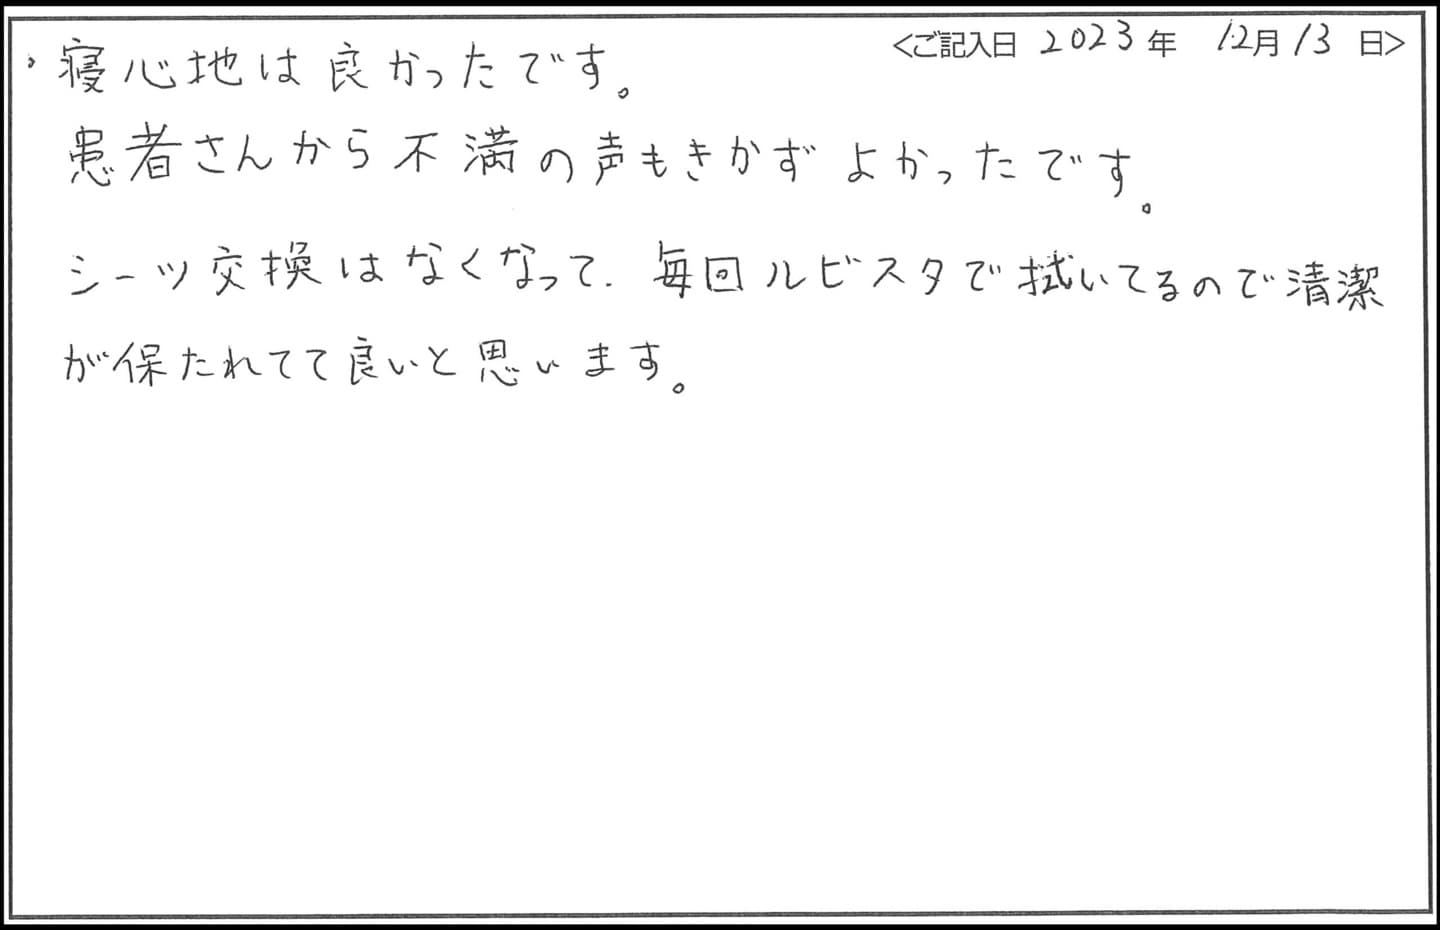 <ご記入日 2023年 12月13日>
・寝心地は良かったです。
患者さんから不満の声もきかずよかったです。
シーツ交換はなくなって、毎回ルビスタで拭いてるので清潔
が保たれてて良いと思います。